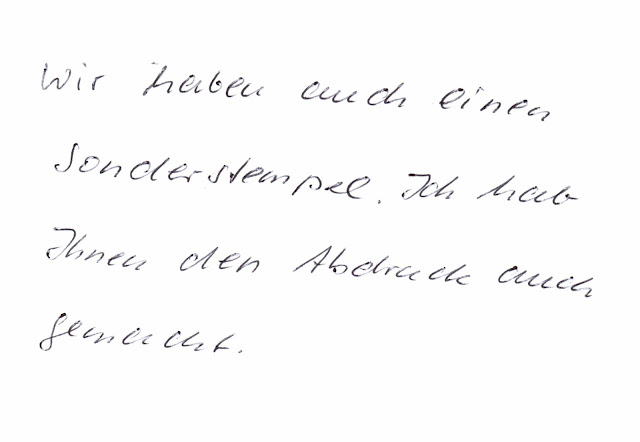 Wir haben auch einen
Sonderstempel. Ich hab
Ihnen den Abdruck auch
gemacht.